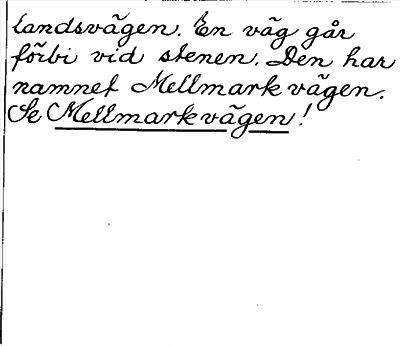 landsvägen. En väg går
förbi vid stenen. Den har
namnet Mellmarkvägen.
Se Mellmarkvägen!